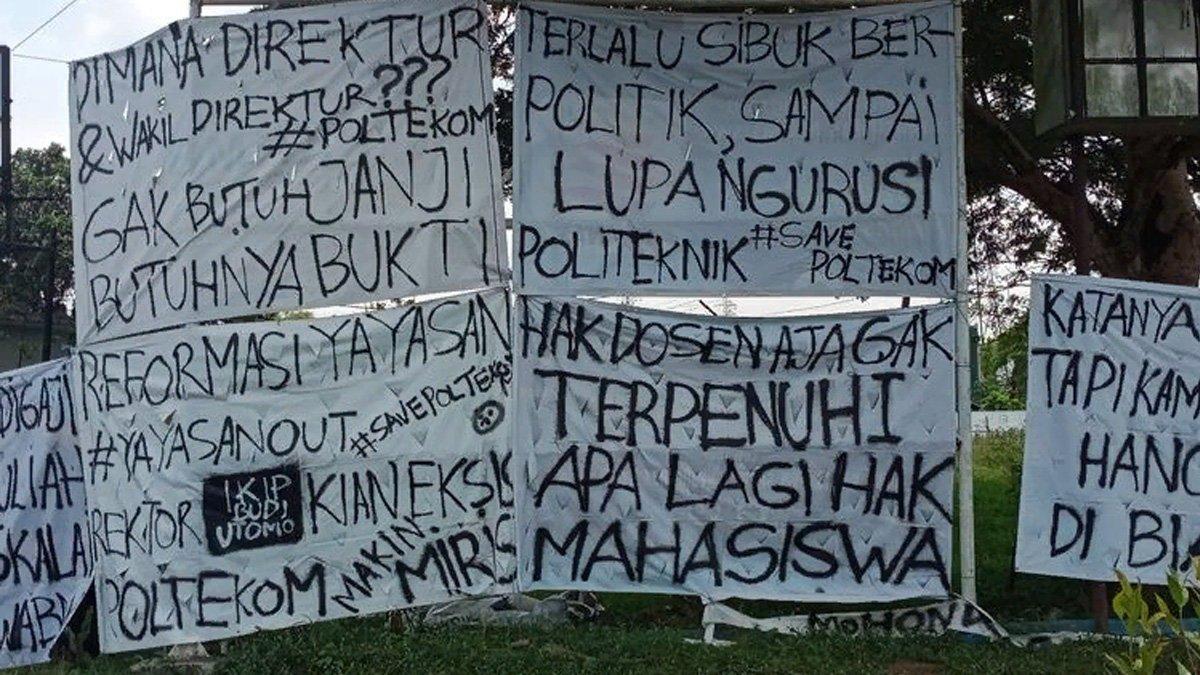 DIMANA DIREKTUR
& WAKIL DIREKTUR???
#POLTEKOM
GAK BUTUH JANJI
BUTUHNYA BUKTI
TERLALU SIBUK BER-
POLITIK, SAMPAI
LUPA NGURUSI
POLITEKNIK #SAVE
POLTEKOM
REFORMASI YAYASAN
#YAYASANOUT #SAVEPOLTEK
REKTOR IKIP BUDI UTOMO KIAN EKSIS
POLTEKOM MAKIN MIRIS
HAK DOSEN AJA GAK
TERPENUHI
APA LAGI HAK
MAHASISWA
KATANYA
TAPI KAM
HANC
DI BI
DIGAJI
ULIAH
SKALA
WAB
MOHON